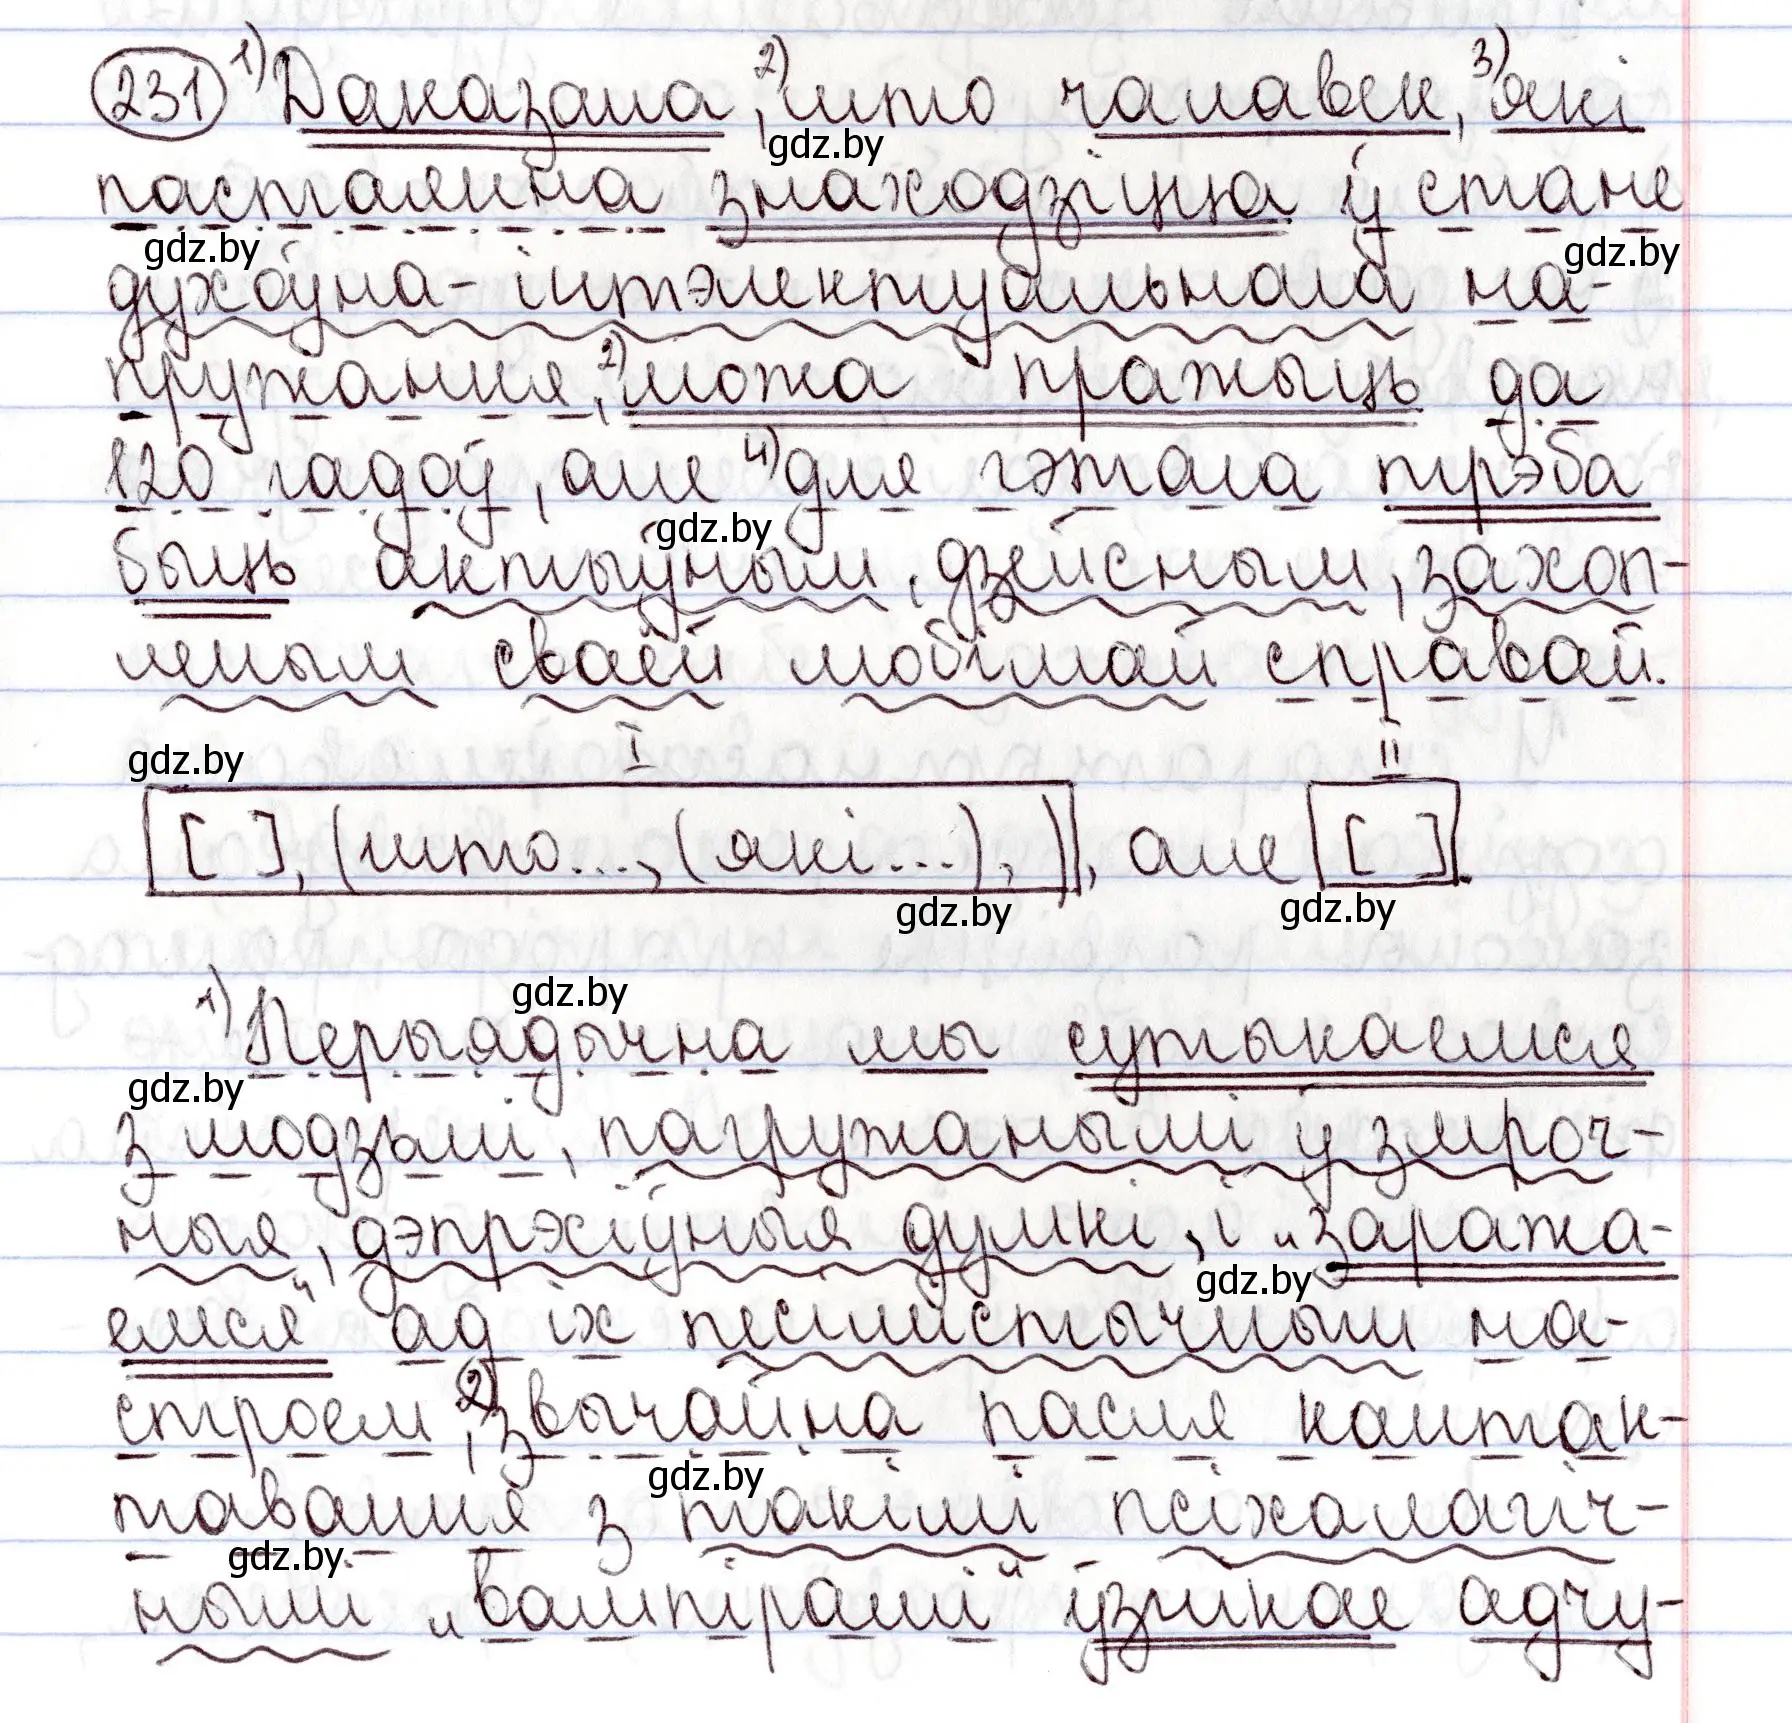 231 1) Даказана, 2) што чалавек, 3) які
gdz.by
пастаянна знаходзіцца ў стане
gdz.by gdz.by
духоўна-інтэлектуальнага на-
пружання, 2) можа пражыць да
120 гадоў, але 4) для гэтага трэба
gdz.by
быць актыўным, дзейсным, захоп-
леным сваёй любімай справай.
gdz.by I II
[ ], (што..., (які...), ), але [ ].
gdz.by gdz.by
gdz.by
1) Перыядычна мы сутыкаемся
gdz.by
з людзьмі, пагружанымі ў змроч-
ныя, дэпрэсіўныя думкі, і „заража-
gdz.by
емся“ ад іх песімістычным на-
строем, 2) звычайна пасля кантак-
gdz.by
тавання з такімі псіхалагіч-
gdz.by
нымі „вампірамі“ ўзнікае адчу-